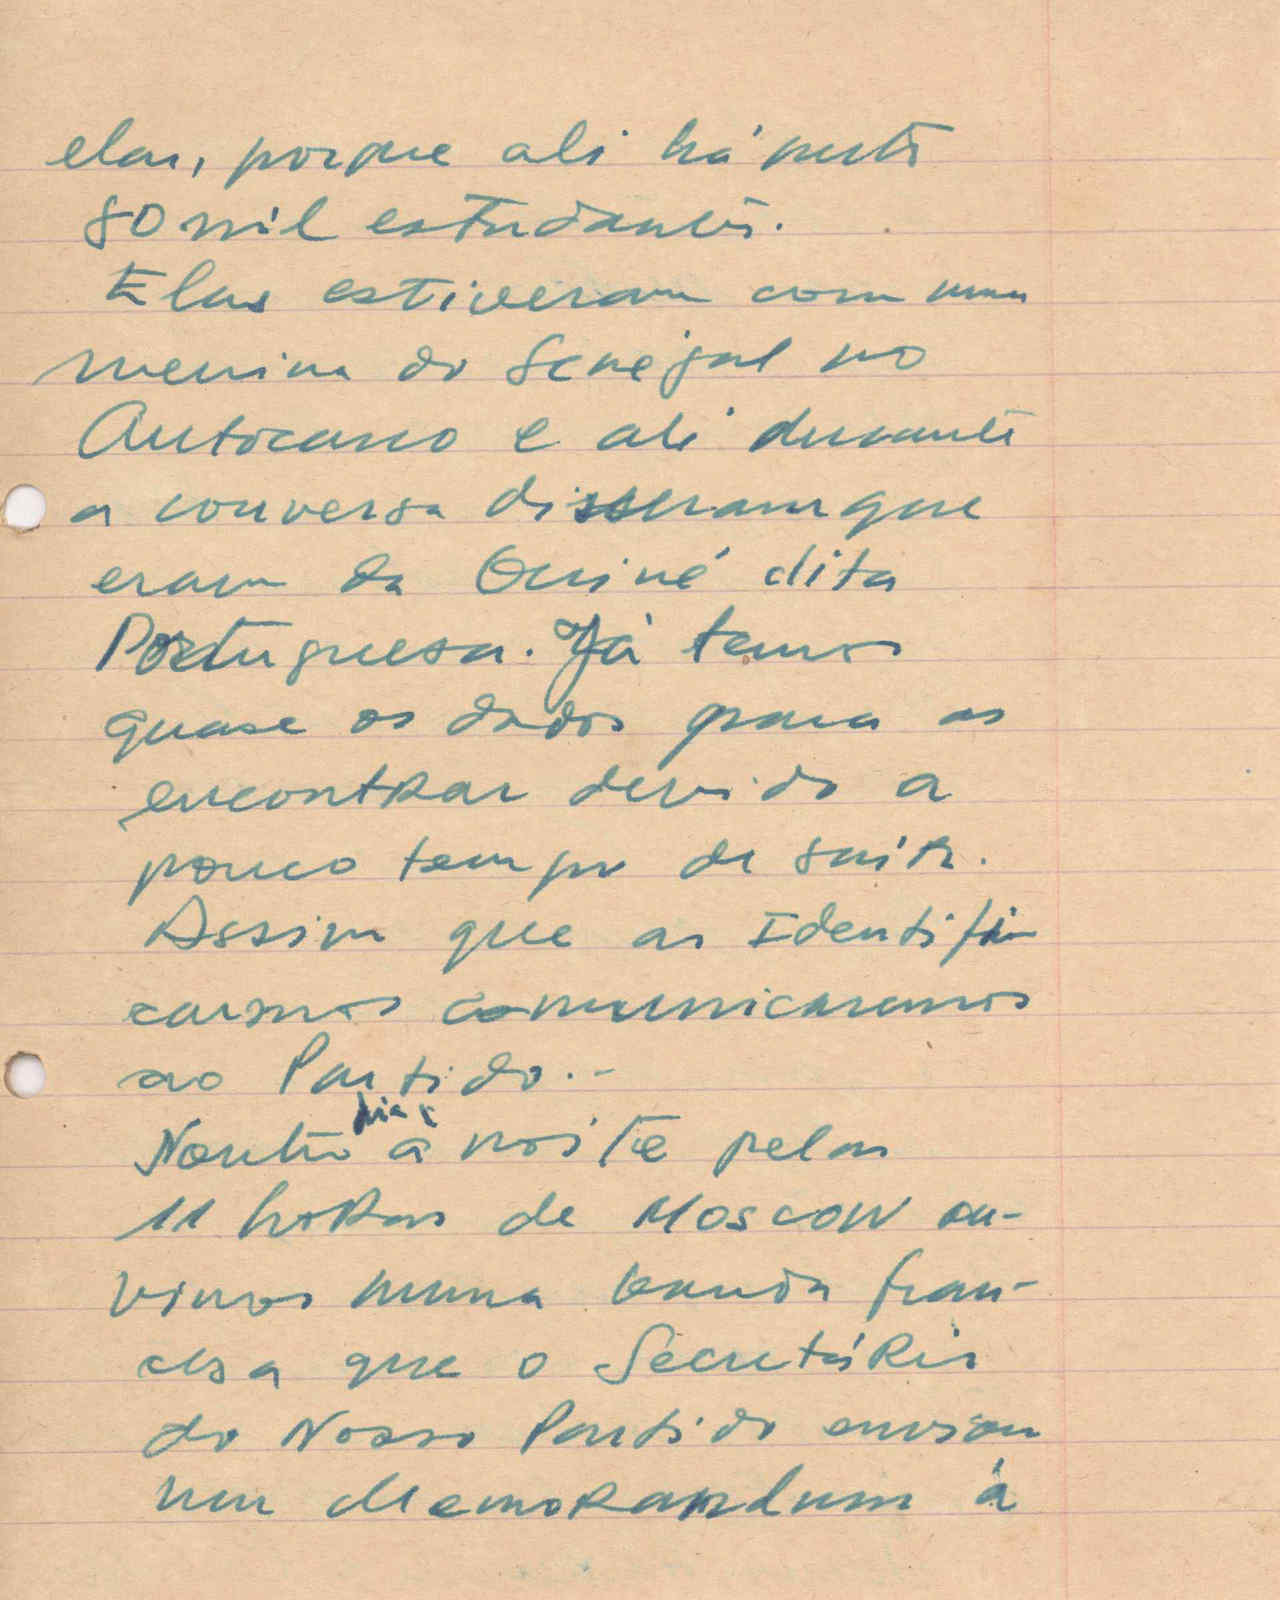 elas, porque ali há perto
80 mil estudantes.
Elas estiveram com uma
menina do Senegal no
Autocarro e ali durante
a conversa disseram que
eram da Guiné dita
Portuguesa. Já temos
quase os dados para as
encontrar devido a
pouco tempo de saír.
Assim que as Identifi
carmos comunicaremos
ao Partido.-
Noutro dia à noite pelas
11 horas de Moscow ou-
vimos numa banda fran-
cesa que o Secretário
do Nosso Partido enviou
um Memorandum à